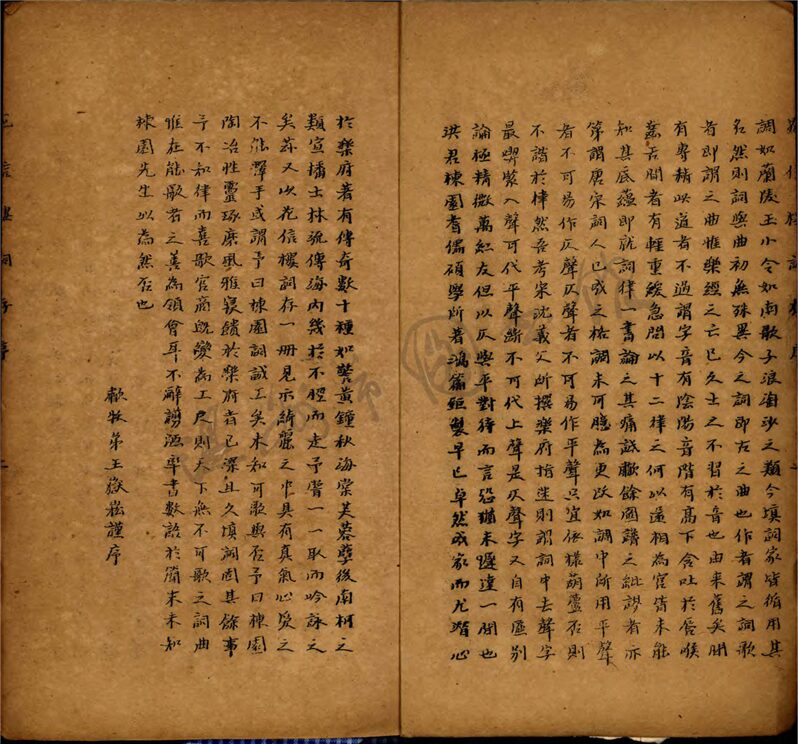 調如蘭陵王小令如南歌子浪淘沙之類今填詞家皆循用其
名然則詞與曲初無殊異今之詞即古之曲也作者謂之詞歌
者即謂之曲惟樂經之亡已久士之不習於音也由来舊矣間
有專精此道者不過謂字音有陰陽音階有高下含吐於唇喉
齒舌間者有輕重緩急問以十二律之何以還相為宮皆未能
知其底蘊即就詞律一書論之其痛詆歗餘圖譜之紕謬者亦
第謂唐宋詞人已成之格調未可臆為更改如調中所用平聲
者不可易作仄聲仄聲者不可易作平聲只宜依樣葫蘆否則
不諧於律然吾考宋沈義父所撰樂府指迷則謂詞中去聲字
最緊要入聲可代平聲絲不可代上聲是仄聲字又自有區別
論極精微萬紅友但以仄與平對待而言恐猶未達一間也
洪君棟園耆儒碩學所著鴻篇鉅製早已卓然成家而尤潛心
於樂府著有傳奇數十種如警黃鐘秋海棠芙蓉孽後南柯之
類宣播士林流傳海內幾於不脛而走予嘗一一取而吟詠之
矣茲又以花信樓詞存一冊見示綺麗之中具有真氣心愛之
不能釋手或謂予曰棟園詞誠工矣未知可歌與否予曰棟園
陶冶性靈琢磨風雅寢饋於樂府者已深且久填詞固其餘事
予不知律而喜歌宮商既變為工尺則天下無不可歌之詞曲
惟在能歌者之善為領會耳不辭謭陋率書數語於簡末未知
棟園先生以為然否也
歗牧弟王嶽崧謹序